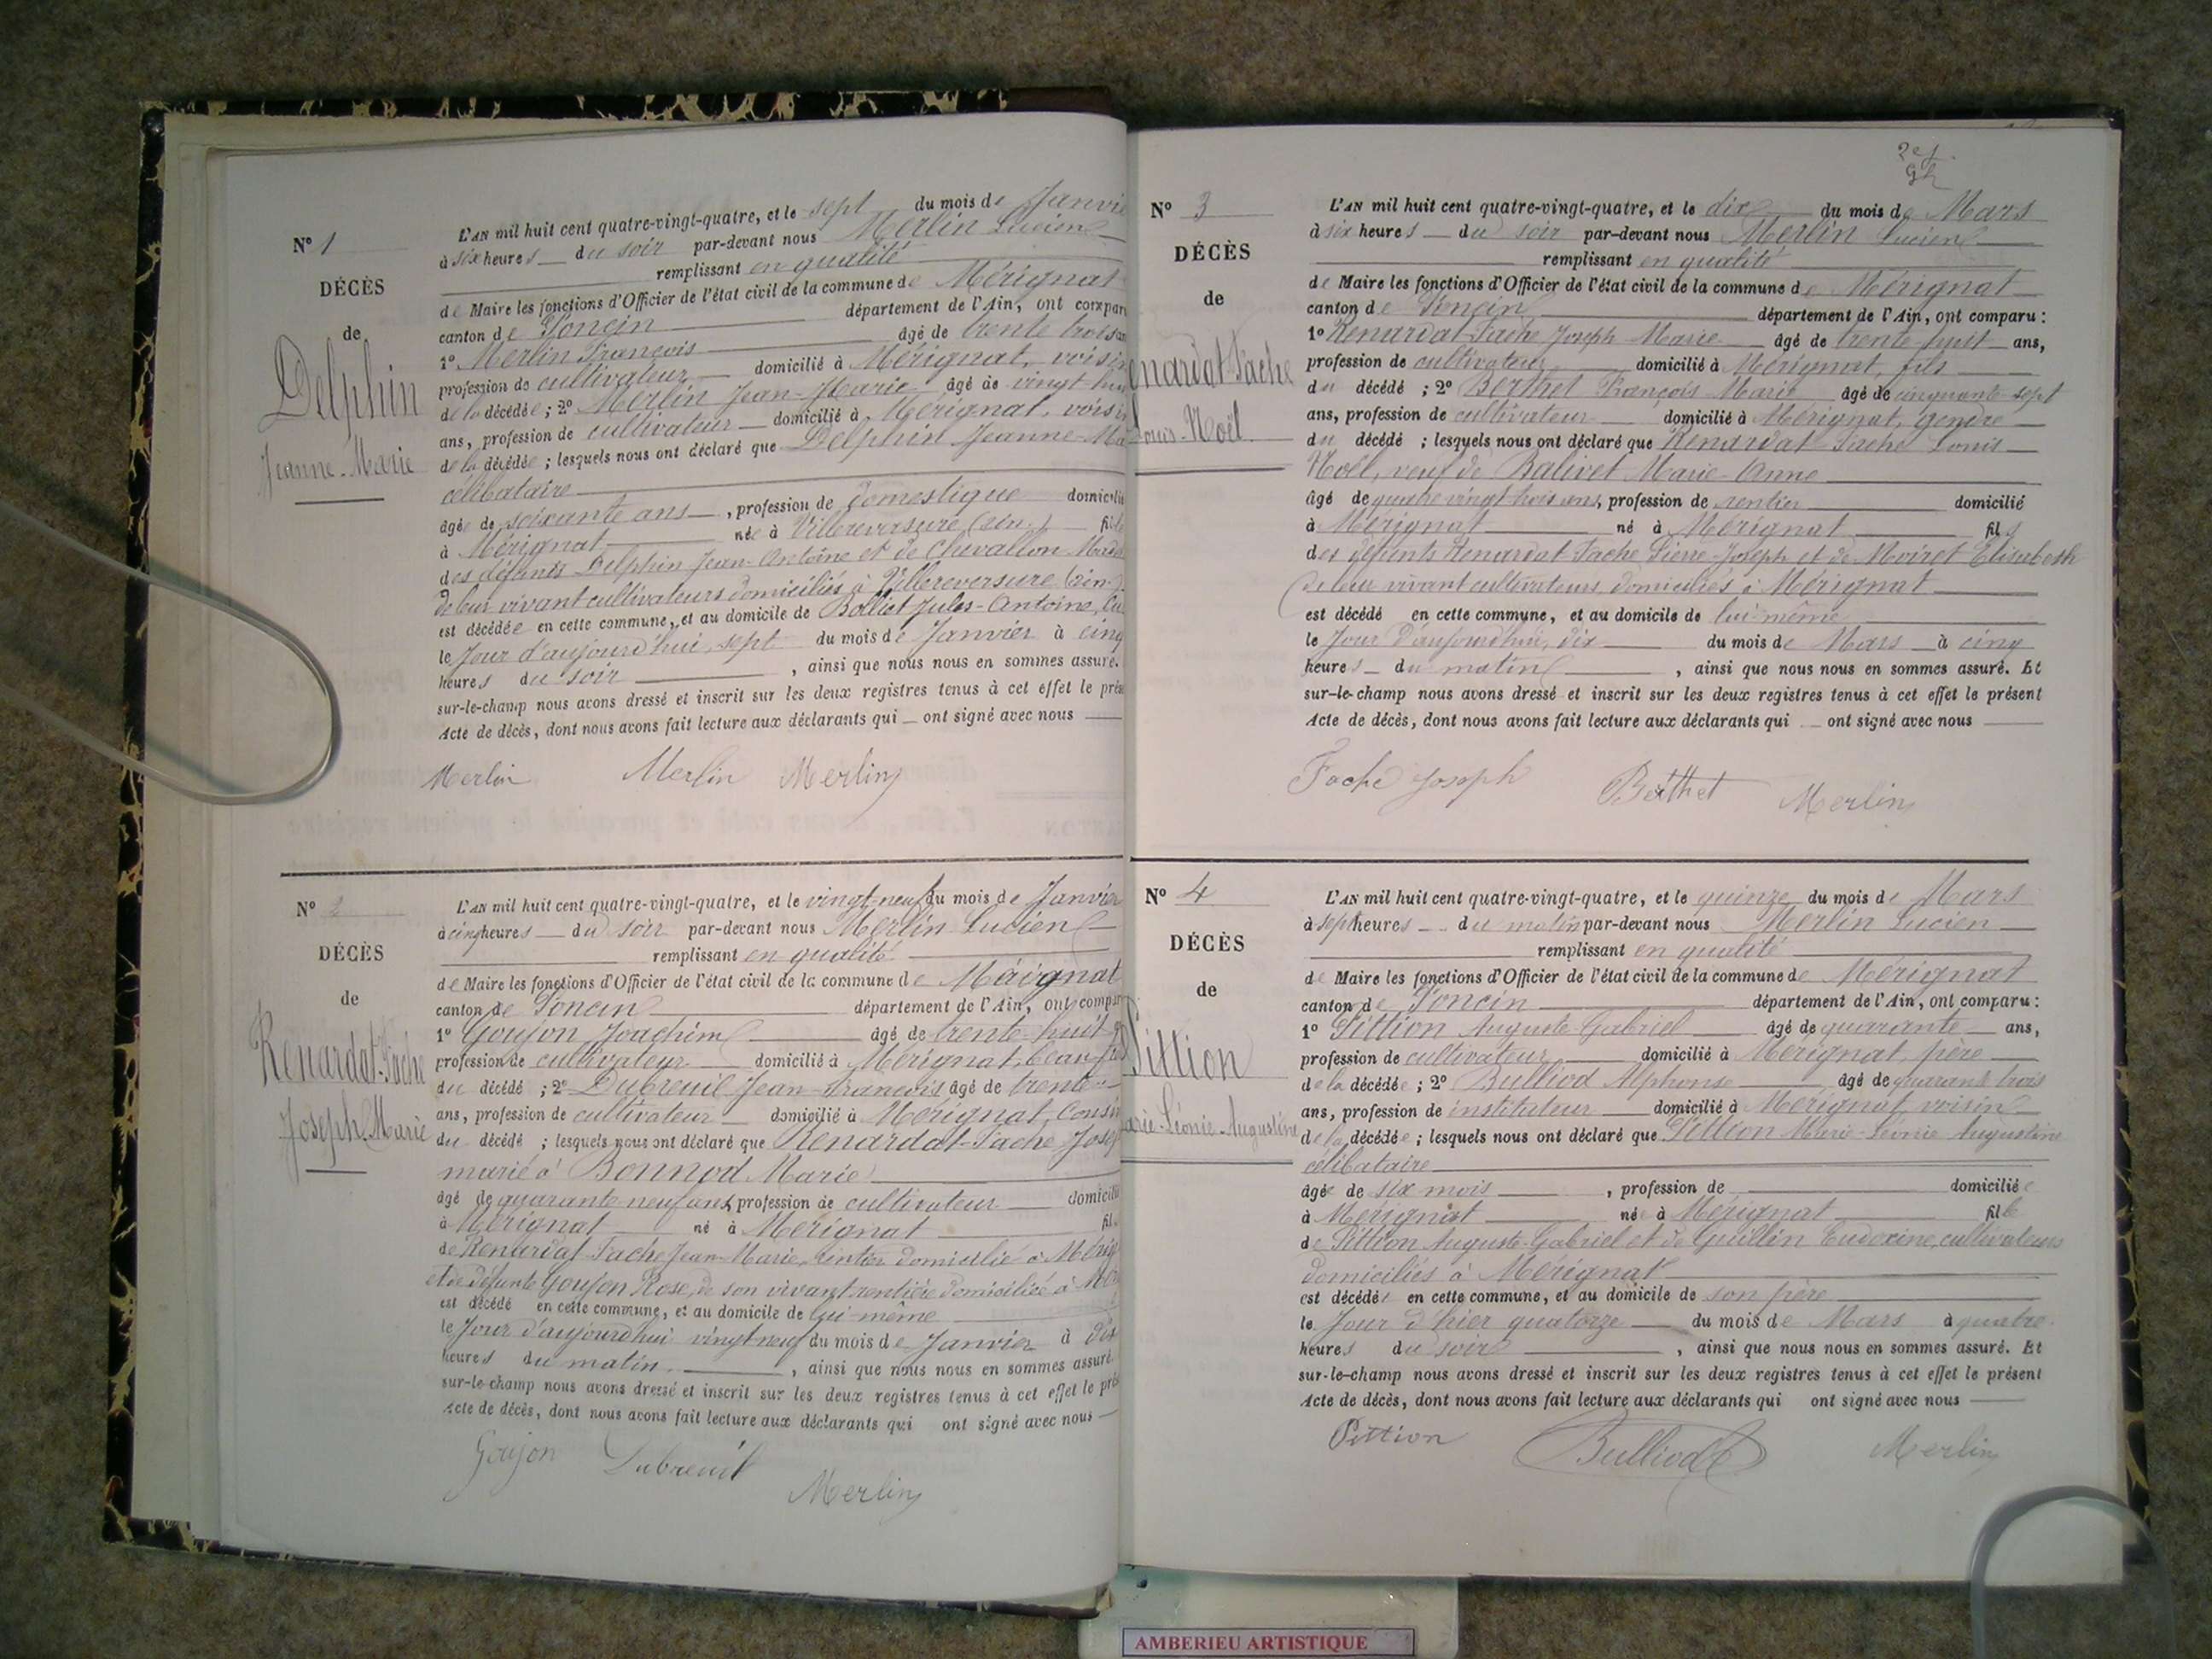 N° 1
DÉCÈS
de
Delphin
Jeanne-Marie
L'AN mil huit cent quatre-vingt-quatre, et le sept du mois de Janvie
à six heures du soir par-devant nous Merlin Lucien
remplissant en qualité
de Maire les fonctions d'Officier de l'état civil de la commune de Mérignat
canton de Poncin département de l'Ain, ont compar
1° Merlin François âgé de trente trois an
profession de cultivateur domicilié à Mérignat, voisin
de la décédée ; 2° Merlin Jean-Marie âgé de vingt hui
ans, profession de cultivateur domicilié à Mérignat, voisin
de la décédée ; lesquels nous ont déclaré que Delphin Jeanne-Ma
célibataire
âgée de soixante ans, profession de domestique domicilié
à Mérignat née à Villereversure (Ain.) fille
des défunts Delphin Jean-Antoine et de Chevallon
de leur vivant cultivateurs domiciliés à Villereversure (Ain.)
est décédée en cette commune, et au domicile de Bolliet Jules-Antoine,
le Jour d'aujourd'hui, sept du mois de Janvier à cinq
heures du soir, ainsi que nous nous en sommes assuré.
sur-le-champ nous avons dressé et inscrit sur les deux registres tenus à cet effet le prés
Acte de décès, dont nous avons fait lecture aux déclarants qui ont signé avec nous
Merlin Merlin Merlin
N° 2
DÉCÈS
de
Renardat-Fache
Joseph Marie
L'AN mil huit cent quatre-vingt-quatre, et le vingt-neuf du mois de Janvier
à cinq heures du soir par-devant nous Merlin Lucien
remplissant en qualité
de Maire les fonctions d'Officier de l'état civil de la commune de Mérignat
canton de Poncin département de l'Ain, ont compar
1° Goujon Joachim âgé de trente-huit
profession de cultivateur domicilié à Mérignat, beau-frè
du décédé ; 2° Dubreuil Jean-François âgé de trente
ans, profession de cultivateur domicilié à Mérignat, Cousin
du décédé ; lesquels nous ont déclaré que Renardat-Fache Josep
marié à Bonnod Marie
âgé de quarante neuf ans, profession de cultivateur domicilié
à Mérignat né à Mérignat fils
de Renardat-Fache Jean-Marie, rentier domicilié à Mérig
et de défunte Goujon Rose, de son vivant rentière domiciliée à Mér
est décédé en cette commune, et au domicile de lui-même
le Jour d'aujourd'hui vingt-neuf du mois de Janvier à dix
heures du matin, ainsi que nous nous en sommes assuré.
sur-le-champ nous avons dressé et inscrit sur les deux registres tenus à cet effet le prés
Acte de décès, dont nous avons fait lecture aux déclarants qui ont signé avec nous
Goujon Dubreuil
Merlin
N° 3
DÉCÈS
de
nardat-Fache
Louis-Noël
L'AN mil huit cent quatre-vingt-quatre, et le dix du mois de Mars
à six heures du soir par-devant nous Merlin Lucien
remplissant en qualité
de Maire les fonctions d'Officier de l'état civil de la commune de Mérignat
canton de Poncin département de l'Ain, ont comparu :
1° Renardat-Fache Joseph Marie âgé de trente-huit ans,
profession de cultivateur domicilié à Mérignat, fils
du décédé ; 2° Berthet François-Marie âgé de cinquante-sept
ans, profession de cultivateur domicilié à Mérignat, gendre
du décédé ; lesquels nous ont déclaré que Renardat-Fache Louis
Noël, veuf de Balivet Marie-Anne
âgé de quatre vingt trois ans, profession de rentier domicilié
à Mérignat né à Mérignat fils
des défunts Renardat-Fache Pierre-Joseph et de Moiret Elisabeth
de leur vivant cultivateurs, domiciliés à Mérignat
est décédé en cette commune, et au domicile de lui-même
le Jour d'aujourd'hui, dix du mois de Mars à cinq
heures du matin, ainsi que nous nous en sommes assuré. Et
sur-le-champ nous avons dressé et inscrit sur les deux registres tenus à cet effet le présent
Acte de décès, dont nous avons fait lecture aux déclarants qui ont signé avec nous
Fache Joseph Berthet Merlin
N° 4
DÉCÈS
de
Pittion
arie-Léonie-Augustine
L'AN mil huit cent quatre-vingt-quatre, et le quinze du mois de Mars
à sept heures du matin par-devant nous Merlin Lucien
remplissant en qualité
de Maire les fonctions d'Officier de l'état civil de la commune de Mérignat
canton de Poncin département de l'Ain, ont comparu :
1° Pittion Auguste-Gabriel âgé de quarante ans,
profession de cultivateur domicilié à Mérignat, père
de la décédée ; 2° Bulliod Alphonse âgé de quarante trois
ans, profession de instituteur domicilié à Mérignat, voisin
de la décédée ; lesquels nous ont déclaré que Pittion Marie-Léonie Augustine
célibataire
âgée de six mois, profession de domiciliée
à Mérignat née à Mérignat fille
de Pittion Auguste-Gabriel et de Guillin Eudoxine, cultivateurs
domiciliés à Mérignat
est décédée en cette commune, et au domicile de son père
le Jour d'hier quatorze du mois de Mars à quatre
heures du soir, ainsi que nous nous en sommes assuré. Et
sur-le-champ nous avons dressé et inscrit sur les deux registres tenus à cet effet le présent
Acte de décès, dont nous avons fait lecture aux déclarants qui ont signé avec nous
Pittion Bulliod Merlin
AMBERIEU ARTISTIQUE